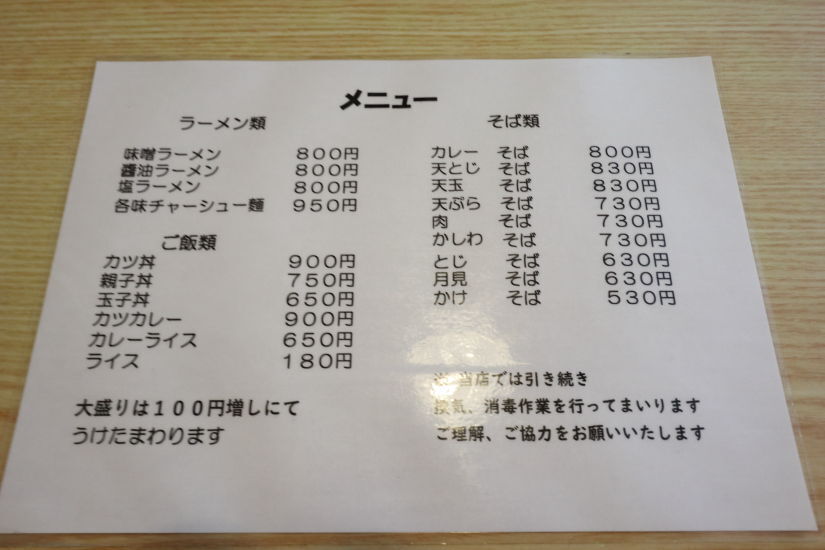 メニュー
ラーメン類
味噌ラーメン　８００円
醤油ラーメン　８００円
塩ラーメン　８００円
各味チャーシュー麺　９５０円
ご飯類
カツ丼　９００円
親子丼　７５０円
玉子丼　６５０円
カツカレー　９００円
カレーライス　６５０円
ライス　１８０円
大盛りは１００円増しにて
うけたまわります
そば類
カレー　そば　８００円
天とじ　そば　８３０円
天玉　そば　８３０円
天ぷら　そば　７３０円
肉　そば　７３０円
かしわ　そば　７３０円
とじ　そば　６３０円
月見　そば　６３０円
かけ　そば　５３０円
※ 当店では引き続き
換気、消毒作業を行ってまいります
ご理解、ご協力をお願いいたします